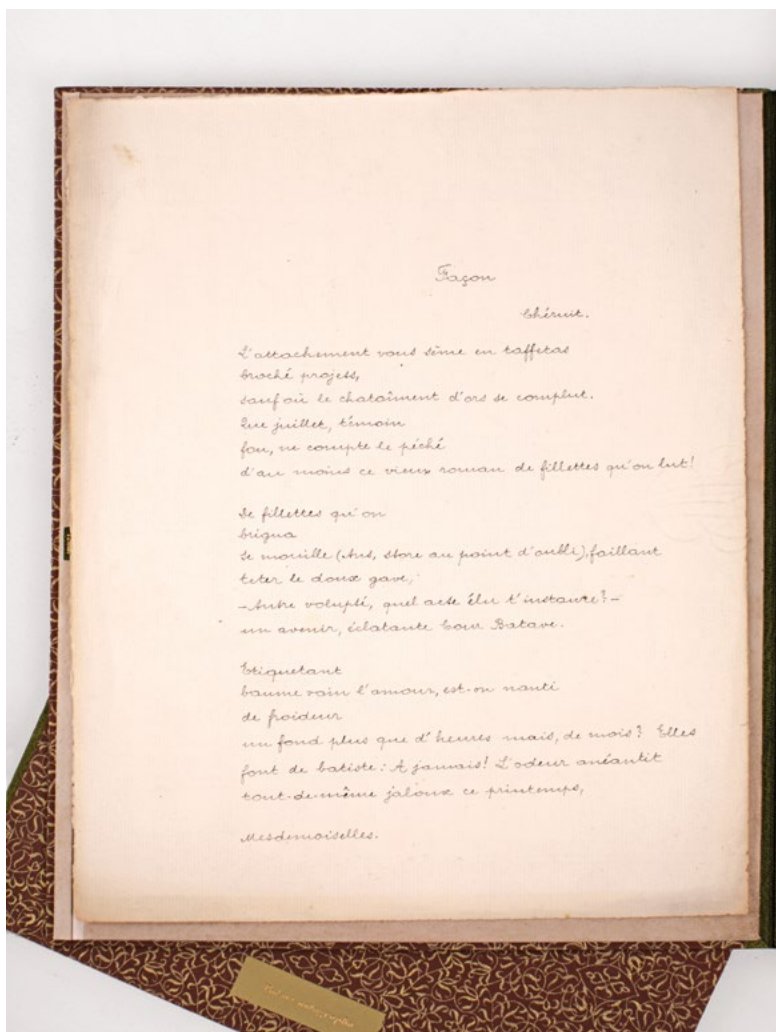 Façon
Chéruit.
L'attachement vous sème en taffetas
broché projets,
sauf où le chatoîment d'ors se complut.
Que juillet, témoin
fou, ne compte le péché
d'au moins ce vieux roman de fillettes qu'on lut!
De fillettes qu'on
brigua
Se mouille (Ans, store au point d'oubli), faillant
téter le doux gave,
–Autre volupté, quel acte élu t'instaure?–
un avenir, éclatante Cour Batave.
Etiquetant
baume vain l'amour, est-on nanti
de froideur
un fond plus que d'heures mais, de mois? Elles
font de batiste: A jamais! L'odeur anéantit
tout-de-même jaloux ce printemps,
Mesdemoiselles.